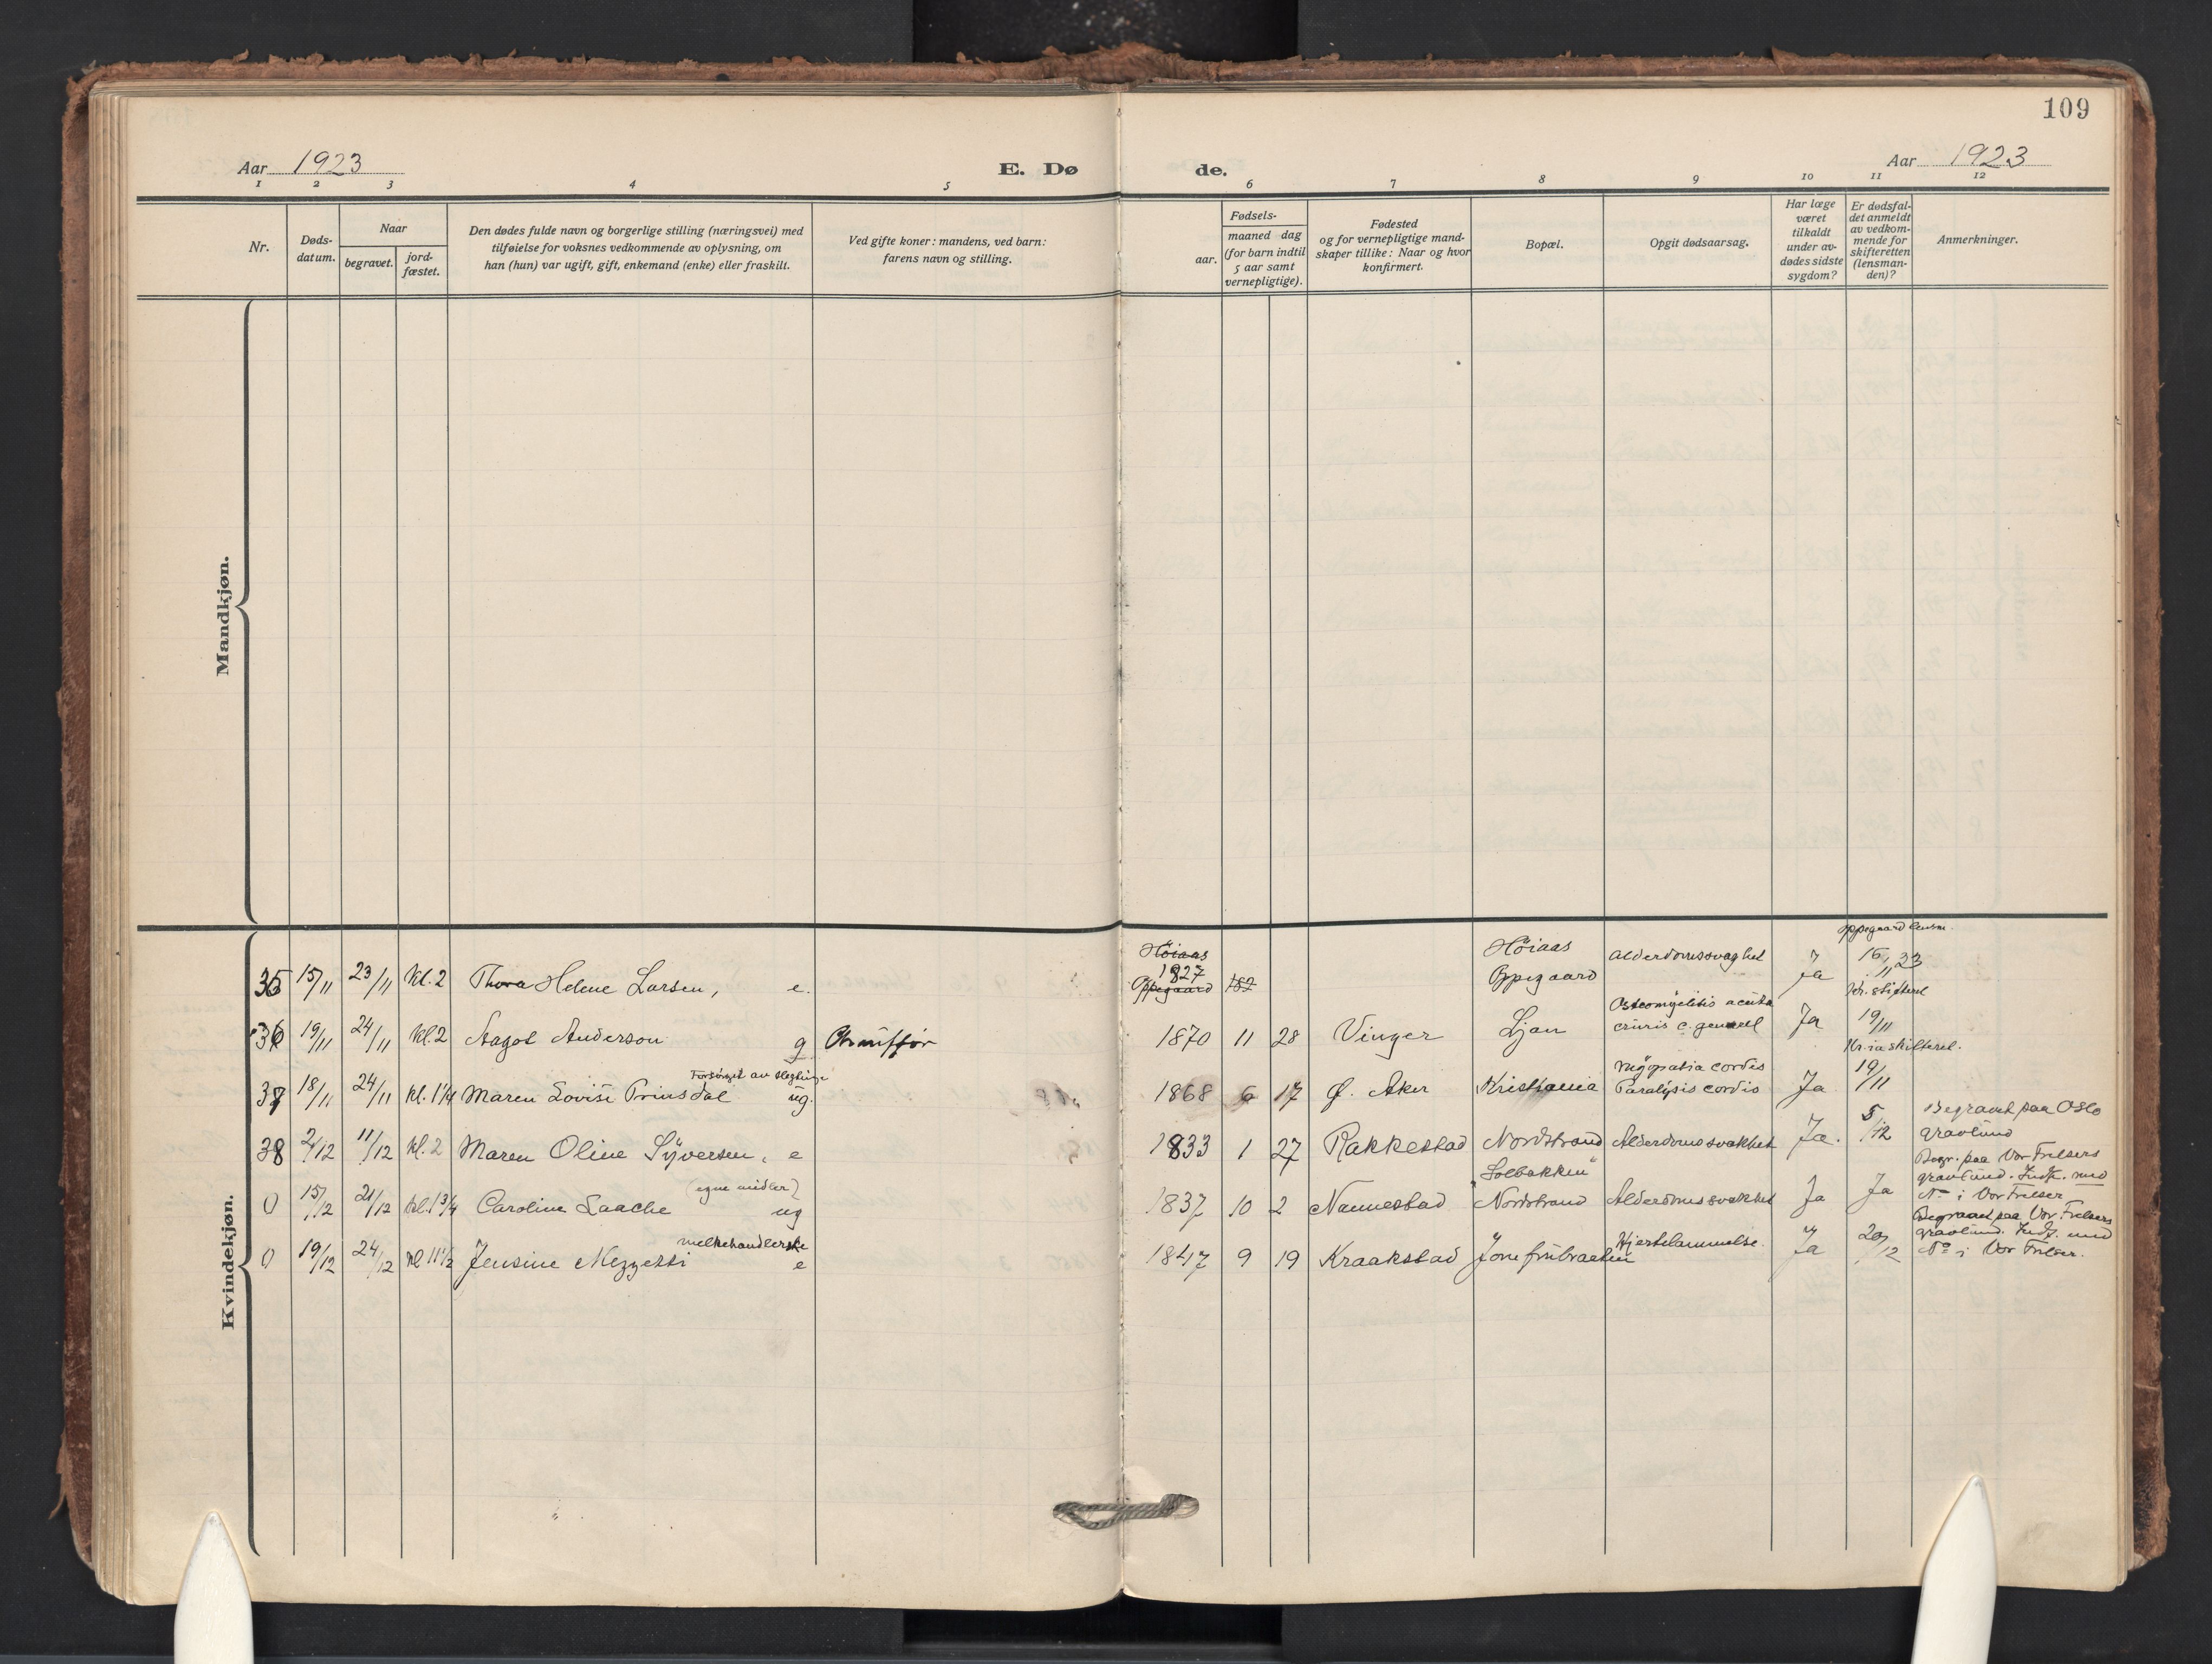 109
Aar 1923 E. Døde. Aar 1923
1 2 3 4 5 6 7 8 9 10 11 12
Nr.
Døds-
datum.
Naar
begravet.
jord-
fæstet.
Den dødes fulde navn og borgerlige stilling (næringsvei) med
tilføielse for voksnes vedkommende av oplysning, om
han (hun) var ugift, gift, enkemand (enke) eller fraskilt.
Ved gifte koner: mandens, ved barn:
farens navn og stilling.
Fødsels-
aar.
maaned dag
(for barn indtil
5 aar samt
vernepligtige).
Fødested
og for vernepligtige mand-
skaper tillike: Naar og hvor
konfirmert.
Bopæl.
Opgit dødsaarsag.
Har læge
været
tilkaldt
under av-
dødes sidste
sygdom?
Er dødsfal-
det anmeldt
av vedkom-
mende for
skifteretten
(lensman-
den)?
Anmerkninger.
Mandkjøn.
Kvindekjøn.
Oppegaard lensm.
Høiaas Høiaas
35 15/11 23/11 Kl. 2 Thora Helene Larsen, e. 1827 Oppegaard Oppegaard Alderdomssvaghet Ja 16/11 23
Kr. skifteret
36 19/11 24/11 Kl. 2 Aagot Anderson g 1870 11 28 Vinger Ljan Osteomyelitis acuta
cruris c. Ja 19/11
Kr.ia skifteret.
Forsørget av slegtninge
37 18/11 24/11 Kl. 1 1/4 Maren Lovise Prinsdal ug. 1868 6 17 Ø. Aker Kristiania Myopatia cordis
Paralysis cordis Ja 19/11
38 2/12 11/12 Kl. 2 Maren Oline Syversen, e 1833 1 27 Rakkestad Nordstrand Alderdomssvakhet Ja. 5/12 Begravet paa Oslo
gravlund
(egne midler) "Solbakken"
0 15/12 21/12 Kl. 1 3/4 Caroline Laache ug 1837 10 2 Nannestad Nordstrand Alderdomssvakhet Ja Ja Begr. paa Vor Frelsers
gravlund. Indf. med
No i Vor Frelser
melkehandlerske
0 19/12 24/12 Kl 11 1/2 Jensine Mezzetti e 1847 9 19 Kraakstad Jomfrubraaten Hjertelammelse. Ja 20/12 Begravet paa Vor Frelsers
gravlund. Indf. med
No i Vor Frelser.